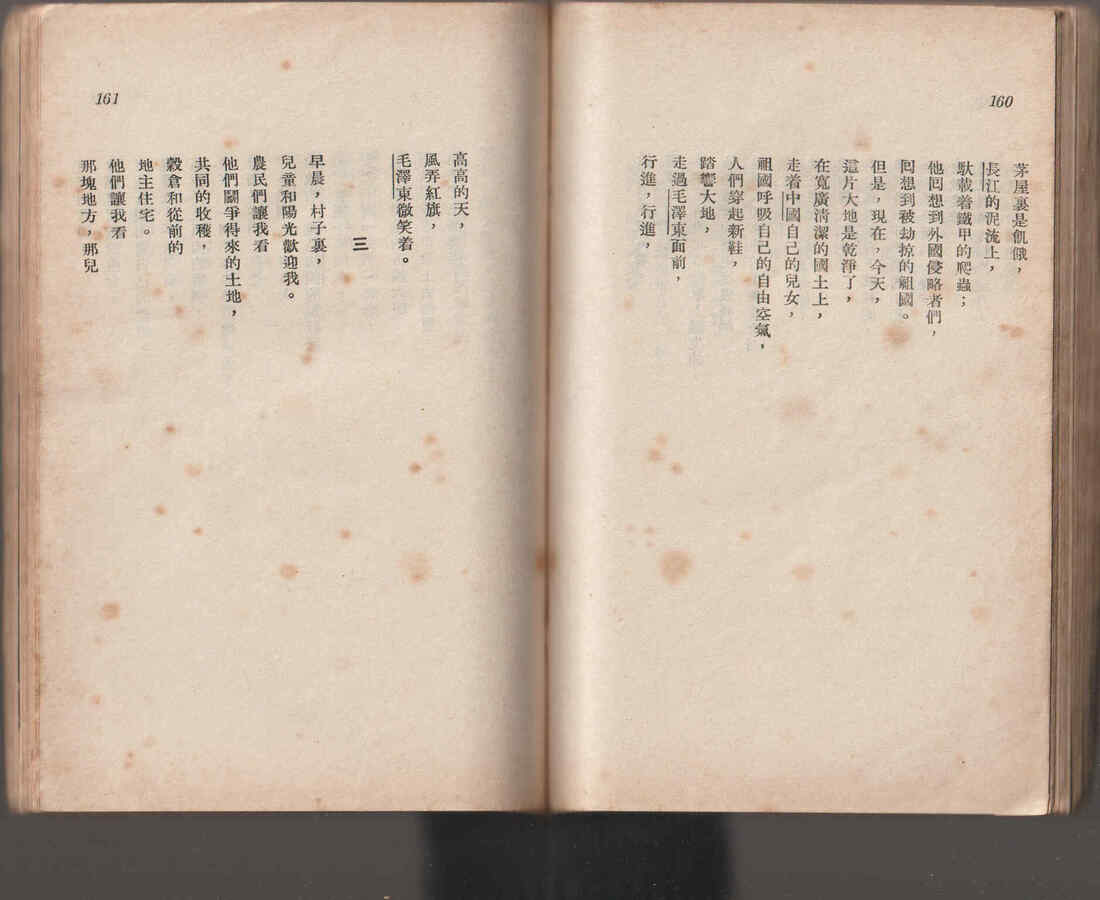 160
茅屋裏是飢餓，
長江的泥流上，
馱載着鐵甲的爬蟲；
他囘想到外國侵略者們，
囘想到被劫掠的祖國。
但是，現在，今天，
這片大地是乾淨了，
在寬廣清潔的國土上，
走着中國自己的兒女，
祖國呼吸自己的自由空氣，
人們穿起新鞋，
踏響大地，
走過毛澤東面前，
行進，行進，
161
高高的天，
風弄紅旗，
毛澤東微笑着。
三
早晨，村子裏，
兒童和陽光歡迎我。
農民們讓我看
他們鬭爭得來的土地，
共同的收穫，
穀倉和從前的
地主住宅。
他們讓我看
那塊地方，那兒